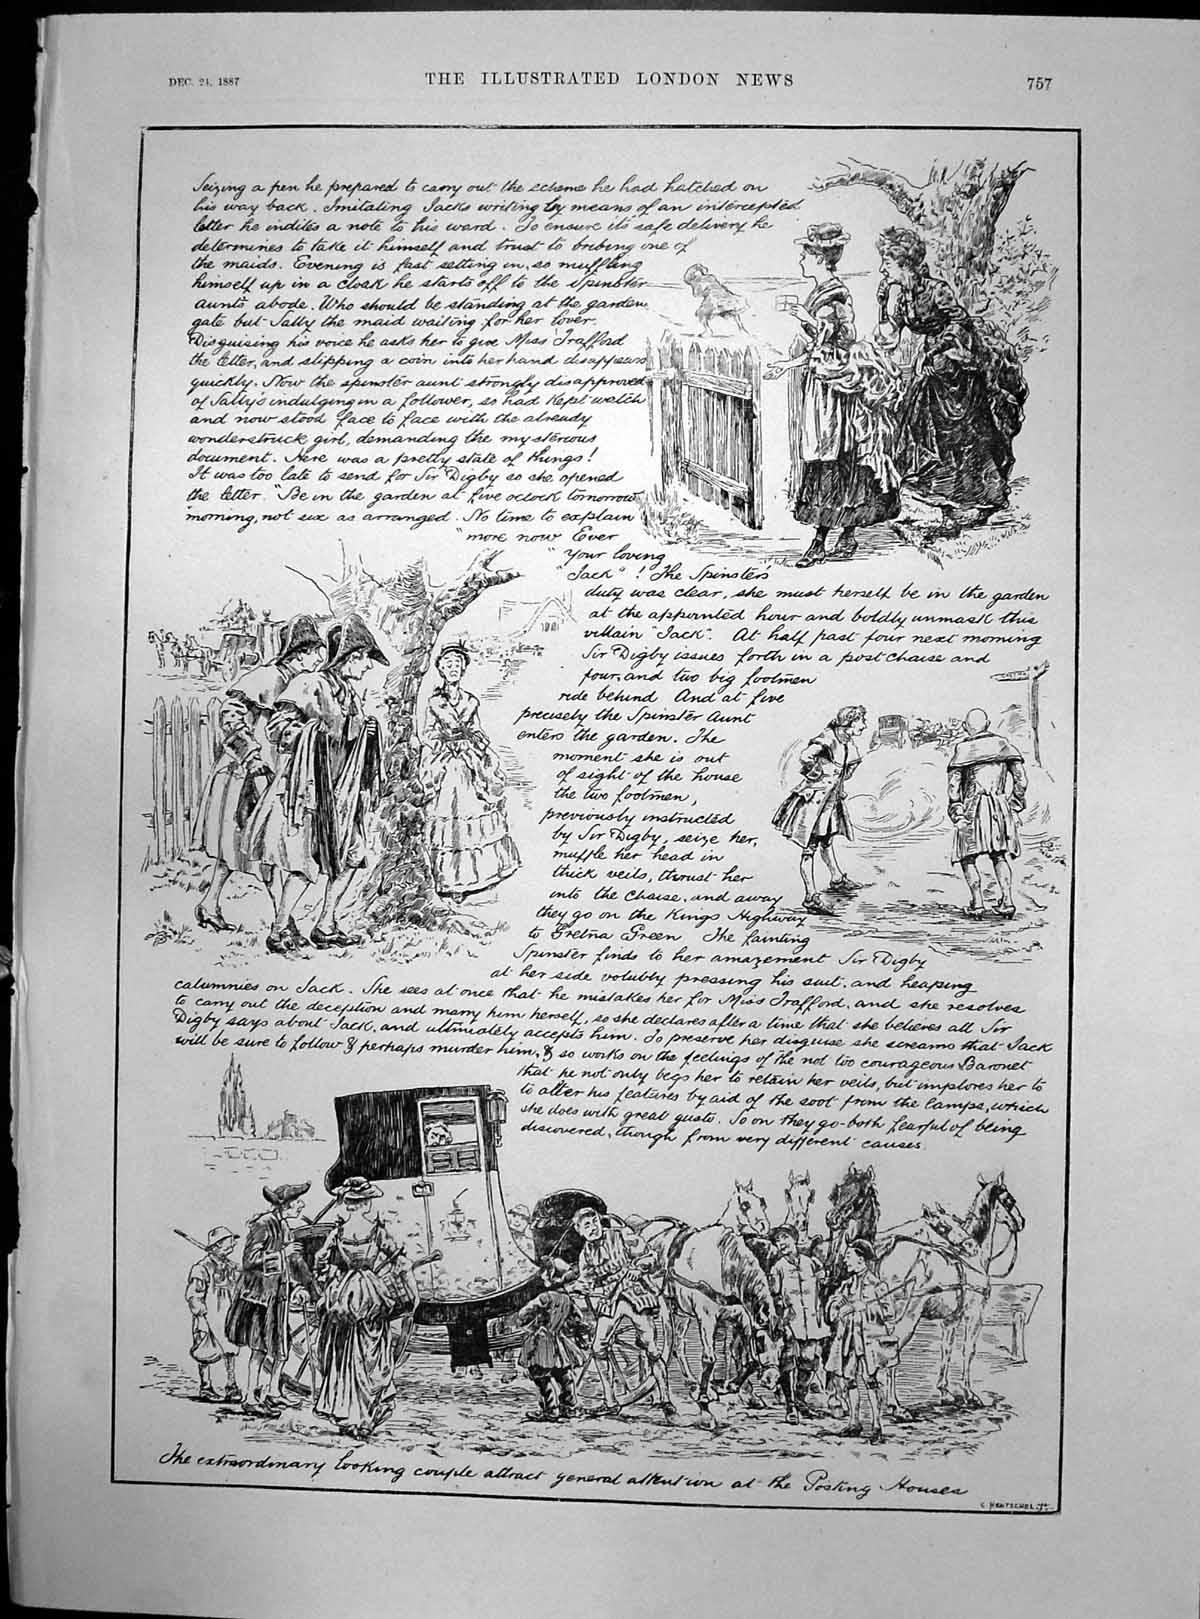 DEC. 24, 1887
THE ILLUSTRATED LONDON NEWS
757
Seizing a pen he prepared to carry out the scheme he had hatched on
his way back. Imitating Jacks writing by means of an intercepted
letter he indites a note to his ward. To ensure its safe delivery he
determines to take it himself and trust to bribing one of
the maids. Evening is fast setting in, so muffling
himself up in a cloak he starts off to the Spinster
aunts abode. Who should be standing at the garden
gate but Sally the maid waiting for her lover.
Disguising his voice he asks her to give Miss Trafford
the letter, and slipping a coin into her hand disappears
quickly. Now the spinster aunt strongly disapproved
of Sally's indulging in a follower, so had kept watch
and now stood face to face with the already
wonderstruck girl, demanding the mysterious
document. Here was a pretty state of things!
It was too late to send for Sir Digby so she opened
the letter. "Be in the garden at five oclock tomorrow
"morning, not six as arranged. No time to explain
"more now Ever
"Your loving
"Jack"! The Spinster's
duty was clear, she must herself be in the garden
at the appointed hour and boldly unmask this
villain "Jack". At half past four next morning
Sir Digby issues forth in a post chaise and
four, and two big footmen
ride behind And at five
precisely the Spinster Aunt
enters the garden. The
moment she is out
of sight of the house
the two footmen,
previously instructed
by Sir Digby, seize her,
muffle her head in
thick veils, thrust her
into the chaise, and away
they go on the Kings Highway
to Gretna Green The fainting
Spinster finds to her amazement Sir Digby
at her side volubly pressing his suit, and heaping
calumnies on Jack. She sees at once that he mistakes her for Miss Trafford, and she resolves
to carry out the deception and marry him herself, so she declares after a time that she believes all Sir
Digby says about Jack, and ultimately accepts him. To preserve her disguise she screams that Jack
will be sure to follow & perhaps murder him, & so works on the feelings of the not too courageous Baronet
that he not only begs her to retain her veils, but implores her to
to alter his features by aid of the soot from the lamps, which
she does with great gusto. So on they go - both fearful of being
discovered, though from very different causes.
The extraordinary looking couple attract general attention at the Posting Houses
C. HENTSCHEL